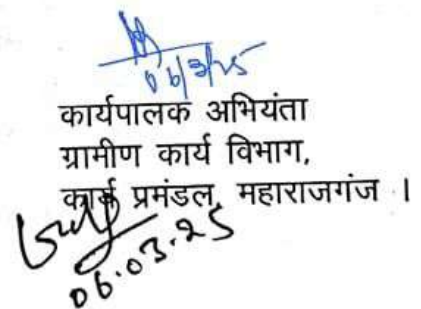 06/3/25
कार्यपालक अभियंता
ग्रामीण कार्य विभाग,
कार्य प्रमंडल, महाराजगंज ।
06.03.25